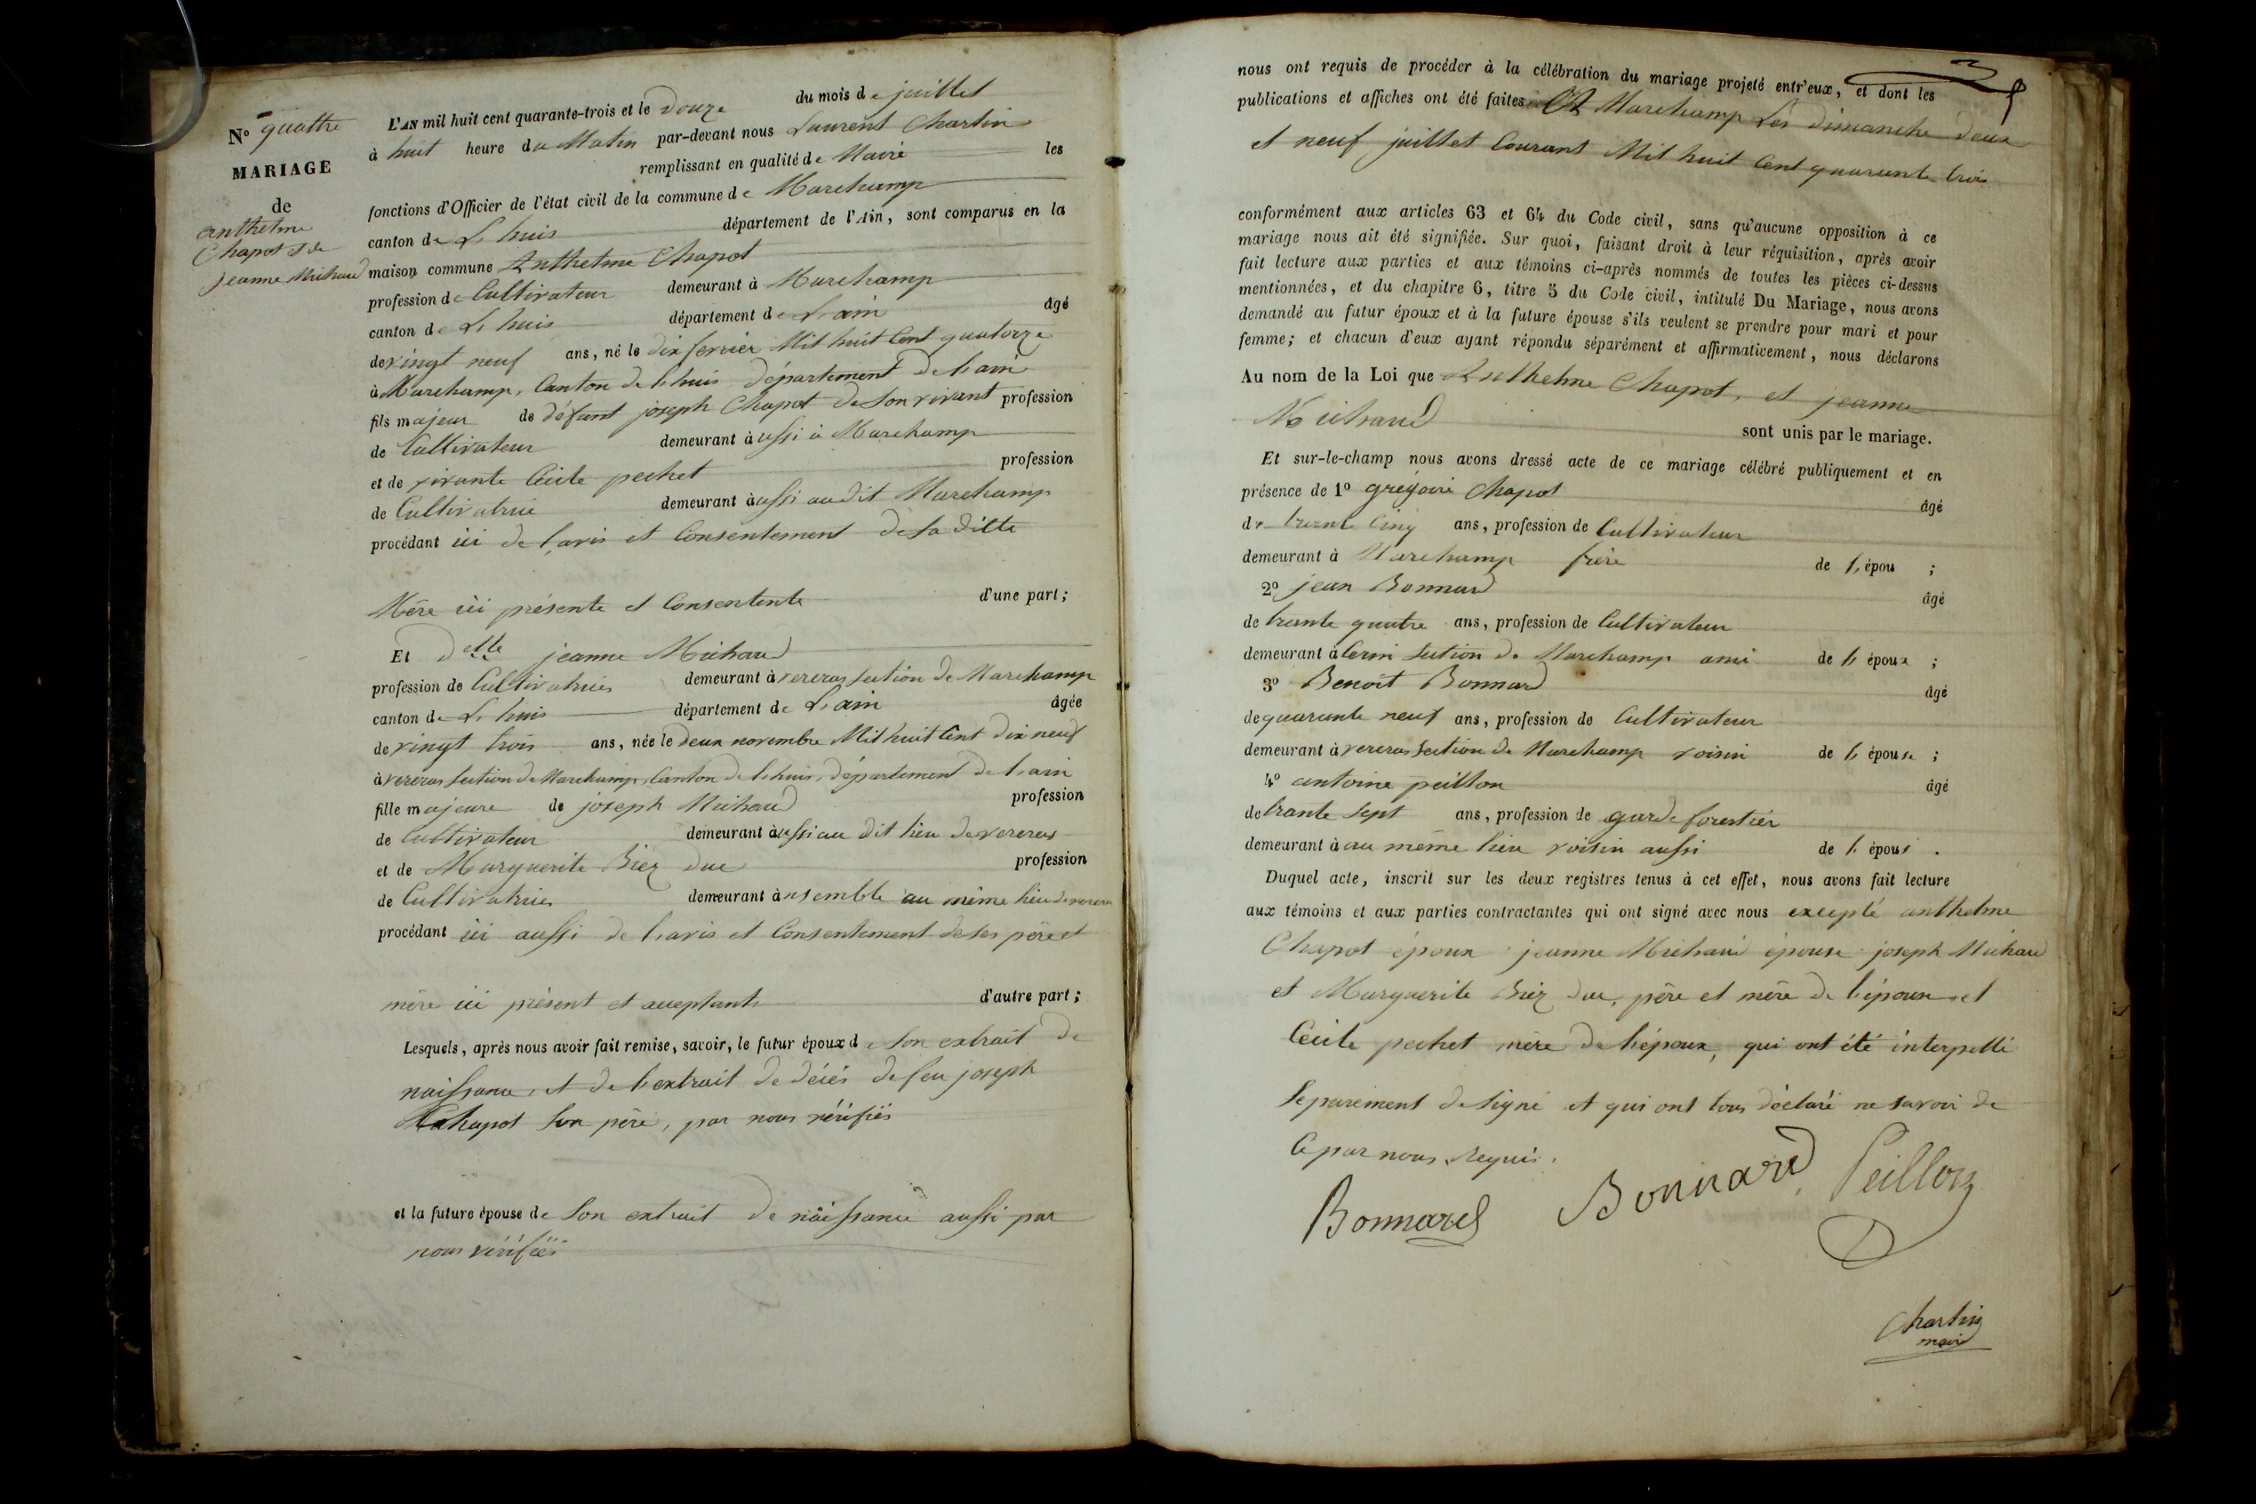 N° quattre
MARIAGE
de
anthelme
Chapot & de
jeanne Michaud
L'AN mil huit cent quarante-trois et le Douze du mois de juillet
à huit heure du Matin par-devant nous Laurent Charlin
remplissant en qualité de Maire les
fonctions d'Officier de l'état civil de la commune de Marchamp
canton de L. huis département de l'Ain, sont comparus en la
maison commune Anthelme Chapot
profession de Cultivateur demeurant à Marchamp
canton de L. huis département de L'ain âgé
de vingt neuf ans, né le dix fevrier Mil huit Cent quatorze
à Marchamp, Canton de L huis département de L'ain
fils majeur de défunt joseph Chapot de son vivant profession
de Cultivateur demeurant à ussi à Marchamp
et de vivante Cécile pechet profession
de Cultivatrice demeurant àussi audit Marchamp
procédant ici de L'avis et Consentement de sa ditte
Mère ici présente et Consentente d'une part;
Et Delle jeanne Michaud
profession de Cultivatrices demeurant à vereras section de Marchamp
canton de L. huis département de L'ain âgée
de vingt trois ans, née le Deux novembre Mil huit Cent dix neuf
à vereras section de Marchamp, Canton de L huis, département de L'ain
fille majeure de joseph Michaud profession
de Cultivateur demeurant àussi au dit lieu de vereras
et de Marguerite Biez Duc profession
de Cultivatrices demeurant ànsemble au même lieu de vereras
procédant ici aussi de L'avis et Consentement de ses père et
mère ici présent et acceptants d'autre part;
Lesquels, après nous avoir fait remise, savoir, le futur époux de Son extrait de
naissance, et de L'extrait de décés de feu joseph
Chapot Son père, par nous vérifiés
et la future épouse de Son extrait de naissance aussi par
nous vérifiés
nous ont requis de procéder à la célébration du mariage projeté entr'eux, et dont les
publications et affiches ont été faites A Marchamp Les dimanche deux
et neuf juillet Courant Mil huit Cent quarante trois
conformément aux articles 63 et 64 du Code civil, sans qu'aucune opposition à ce
mariage nous ait été signifiée. Sur quoi, faisant droit à leur réquisition, après avoir
fait lecture aux parties et aux témoins ci-après nommés de toutes les pièces ci-dessus
mentionnées, et du chapitre 6, titre 5 du Code civil, intitulé Du Mariage, nous avons
demandé au futur époux et à la future épouse s'ils veulent se prendre pour mari et pour
femme; et chacun d'eux ayant répondu séparément et affirmativement, nous déclarons
Au nom de la Loi que Anthelme Chapot, et jeanne
Michaud sont unis par le mariage.
Et sur-le-champ nous avons dressé acte de ce mariage célébré publiquement et en
présence de 1° grégoire Chapot âgé
de trante Cinq ans, profession de Cultivateur
demeurant à Marchamp frère de L'épou ;
2° jean Bonnard âgé
de trante quatre ans, profession de Cultivateur
demeurant à Cerin section de Marchamp ami de L'époux ;
3° Benoît Bonnard âgé
de quarante neuf ans, profession de Cultivateur
demeurant à vereras section de Marchamp voisin de L'épouse ;
4° antoine peillon âgé
de trante sept ans, profession de garde forestier
demeurant à au même lieu voisin aussi de L'épous .
Duquel acte, inscrit sur les deux registres tenus à cet effet, nous avons fait lecture
aux témoins et aux parties contractantes qui ont signé avec nous excepté anthelme
Chapot époux jeanne Michaud épouse joseph Michaud
et Marguerite Biez duc, père et mère de L'épouse et
Cécile pechet mère de L'époux, qui ont été interpellé
Séparement de Signé et qui ont tous déclaré ne savoir de
Ce par nous Requis.
Bonnard Bonnard Peillon
Charlin
maire